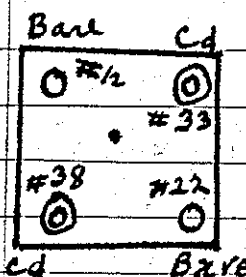 Bare Cd
#12
#33
#38 #22
Cd Bare